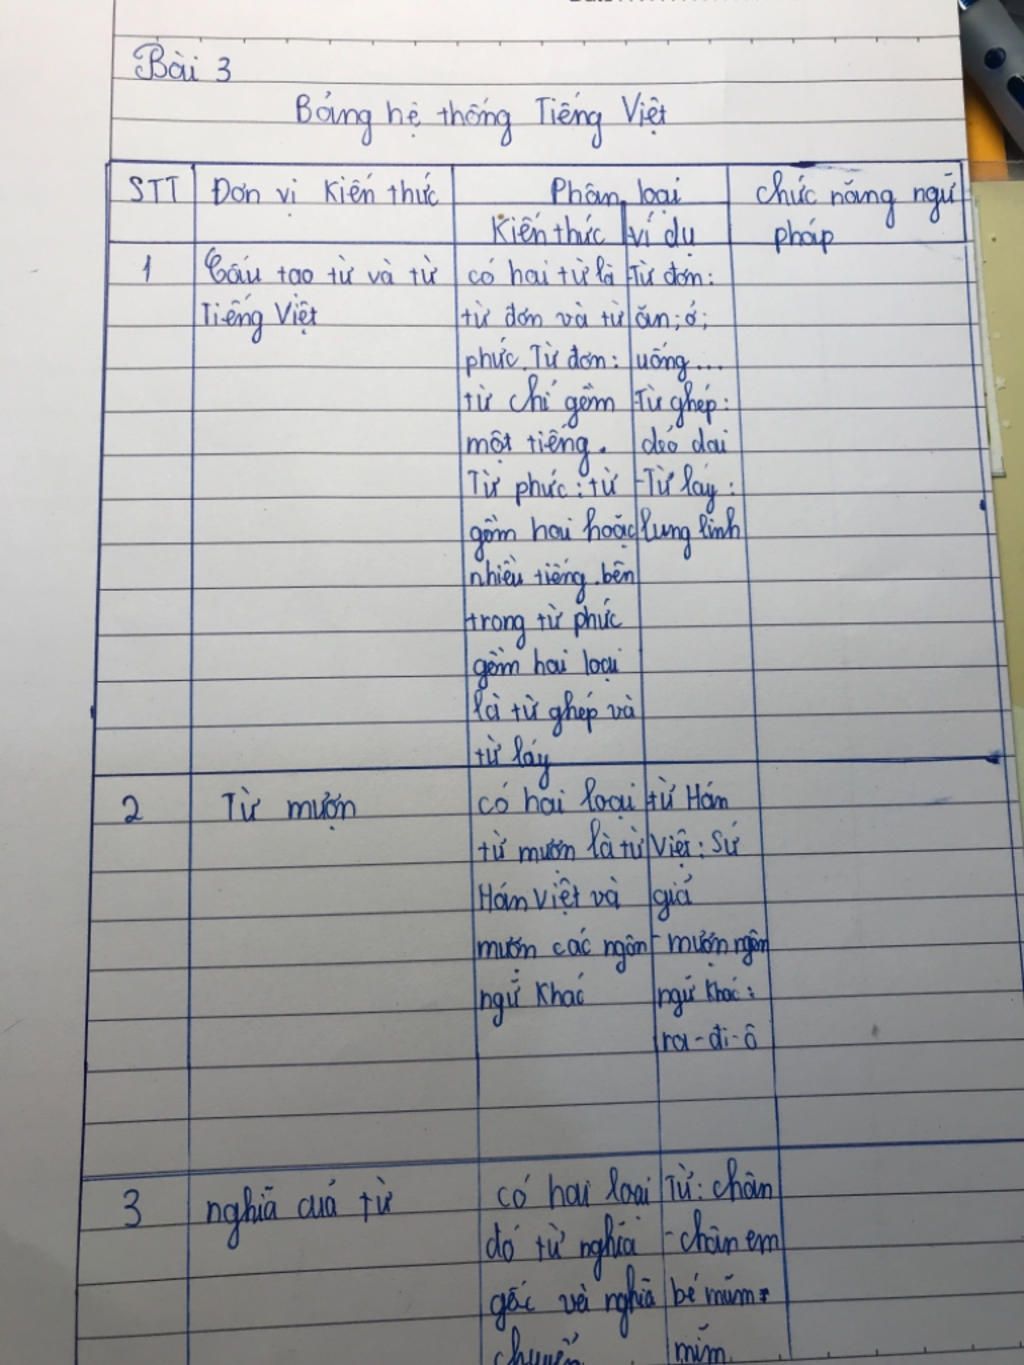 Bài 3
Bảng hệ thống Tiếng Việt
STT
Đơn vị kiến thức
Phân loại
Kiến thức
ví dụ
chức năng ngữ
pháp
1
Cấu tạo từ và từ
Tiếng Việt
có hai từ là
từ đơn và từ
phức. Từ đơn:
từ chỉ gồm
một tiếng.
Từ phức: từ
gồm hai hoặc
nhiều tiếng. bên
trong từ phức
gồm hai loại
là từ ghép và
từ láy
Từ đơn:
ăn; ở;
uống...
Từ ghép:
dẻo dai
-Từ láy:
lung linh
2
Từ mượn
có hai loại
từ mượn là từ
Hán Việt và
mượn các ngôn
ngữ khác
từ Hán
Việt: Sứ
giả
- mượn ngôn
ngữ khác:
ra-đi-ô
3
nghĩa của từ
có hai loại
đó từ nghĩa
gốc và nghĩa
chuyển
Từ: chân
-chân em
bé mũm
mĩm